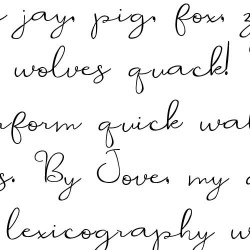 jay, pig, fox,
wolves quack!
quick
By Jove, my
lexicography